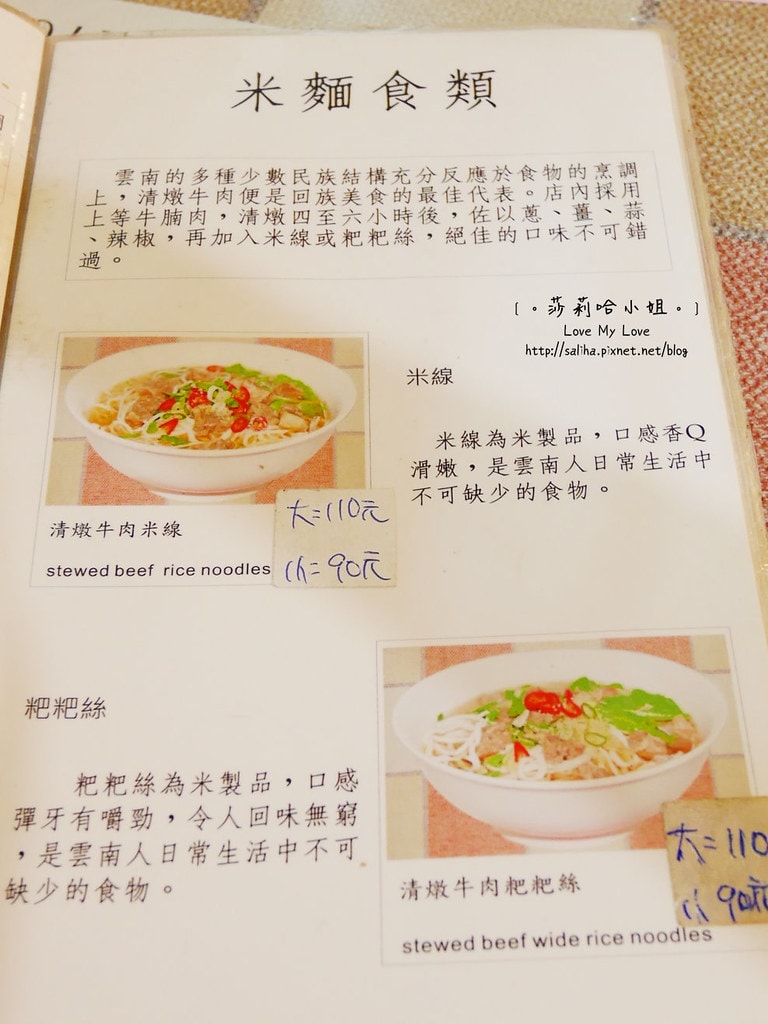 米麵食類
雲南的多種少數民族結構充分反應於食物的烹調
上，清燉牛肉便是回族美食的最佳代表。店內採用
上等牛腩肉，清燉四至六小時後，佐以蔥、薑、蒜
、辣椒，再加入米線或粑粑絲，絕佳的口味不可錯
過。
[。莎莉哈小姐。]
Love My Love
http://saliha.pixnet.net/blog
米線
米線為米製品，口感香Q
滑嫩，是雲南人日常生活中
不可缺少的食物。
清燉牛肉米線
stewed beef rice noodles
大=110元
小=90元
粑粑絲
粑粑絲為米製品，口感
彈牙有嚼勁，令人回味無窮
，是雲南人日常生活中不可
缺少的食物。
清燉牛肉粑粑絲
stewed beef wide rice noodles
大=110
小90元